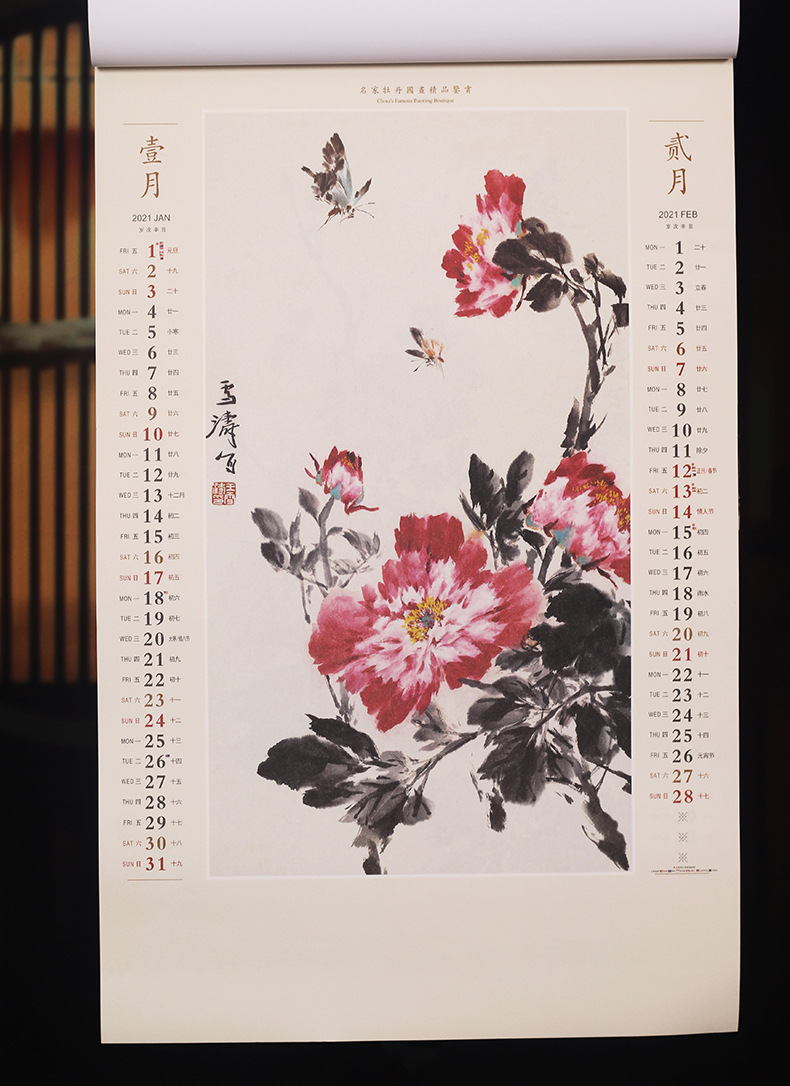 名家牡丹國畫精品鑒賞
China's Famous Painting Boutique
壹
月
2021 JAN
岁次辛丑
FRI 五 1 元旦
SAT 六 2 十九
SUN 日 3 二十
MON 一 4 廿一
TUE 二 5 小寒
WED 三 6 廿三
THU 四 7 廿四
FRI 五 8 廿五
SAT 六 9 廿六
SUN 日 10 廿七
MON 一 11 廿八
TUE 二 12 廿九
WED 三 13 十二月
THU 四 14 初二
FRI 五 15 初三
SAT 六 16 初四
SUN 日 17 初五
MON 一 18 初六
TUE 二 19 初七
WED 三 20 大寒/腊八节
THU 四 21 初九
FRI 五 22 初十
SAT 六 23 十一
SUN 日 24 十二
MON 一 25 十三
TUE 二 26 十四
WED 三 27 十五
THU 四 28 十六
FRI 五 29 十七
SAT 六 30 十八
SUN 日 31 十九
雪濤写
贰
月
2021 FEB
岁次辛丑
MON 一 1 二十
TUE 二 2 廿一
WED 三 3 立春
THU 四 4 廿三
FRI 五 5 廿四
SAT 六 6 廿五
SUN 日 7 廿六
MON 一 8 廿七
TUE 二 9 廿八
WED 三 10 廿九
THU 四 11 除夕
FRI 五 12 正月/春节
SAT 六 13 初二
SUN 日 14 情人节
MON 一 15 初四
TUE 二 16 初五
WED 三 17 初六
THU 四 18 雨水
FRI 五 19 初八
SAT 六 20 初九
SUN 日 21 初十
MON 一 22 十一
TUE 二 23 十二
WED 三 24 十三
THU 四 25 十四
FRI 五 26 元宵节
SAT 六 27 十六
SUN 日 28 十七
※
※
※